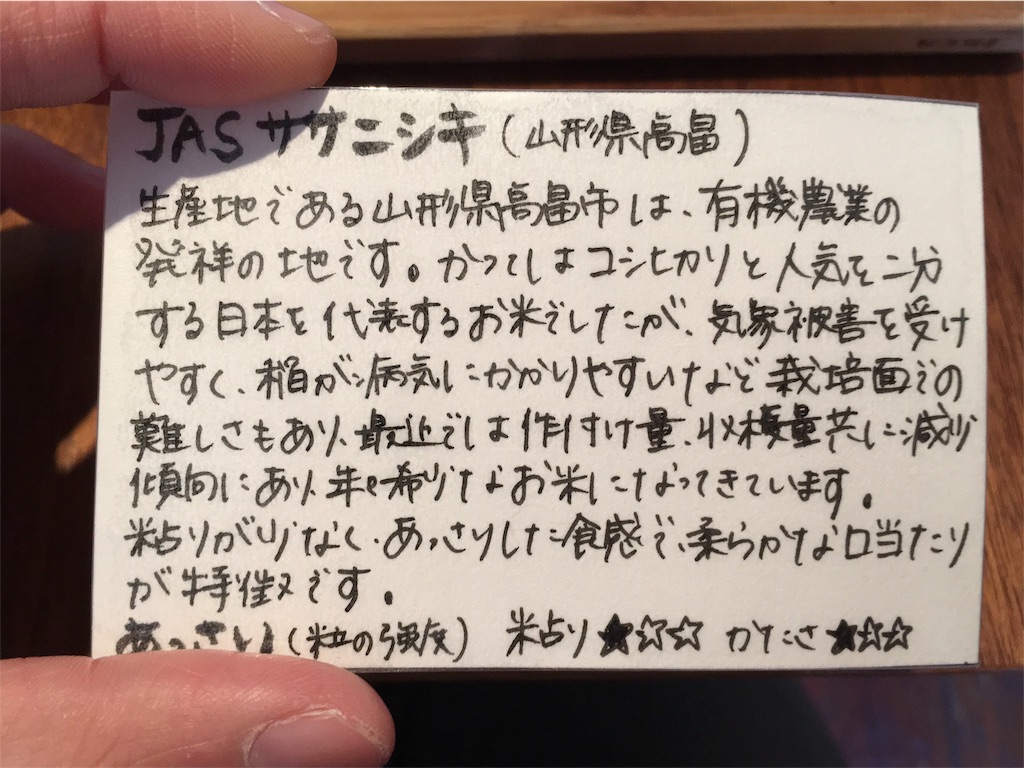 JASササニシキ(山形県高畠)
生産地である山形県高畠市は、有機農業の
発祥の地です。かつてはコシヒカリと人気を二分
する日本を代表するお米でしたが、気象被害を受け
やすく、稲が病気にかかりやすいなど栽培面での
難しさもあり、最近では作付け量、収穫量共に減少
傾向にあり、年々希少なお米になってきています。
粘りが少なく、あっさりした食感で、柔らかな口当たり
が特徴です。
あっさり(粒の強度) 粘り★☆☆ かたさ★☆☆